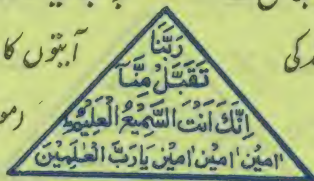 کی
آیتوں کا
رَبَّنَا
تَقَبَّلْ مِنَّآ
اِنَّكَ اَنْتَ السَّمِيْعُ الْعَلِيْمُ
اٰمِيْن اٰمِيْن اٰمِيْن يَارَبَّ الْعٰلَمِيْنَ